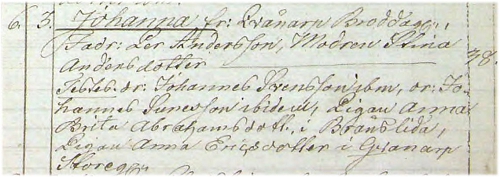 6. 3. Johanna, fr: Qvänarp Broddag:,
Fadr: Per Andersson, Modren Stina
Andersdotter 38.
Testes dr: Johannes Svensson ibm, dr: Jo-
hannes Sunesson ibidem, Pigan Anna
Brita Abrahamsdott., i Bränslida,
Pigan Anna Ericsdotter i Qvänarp
Storeg: